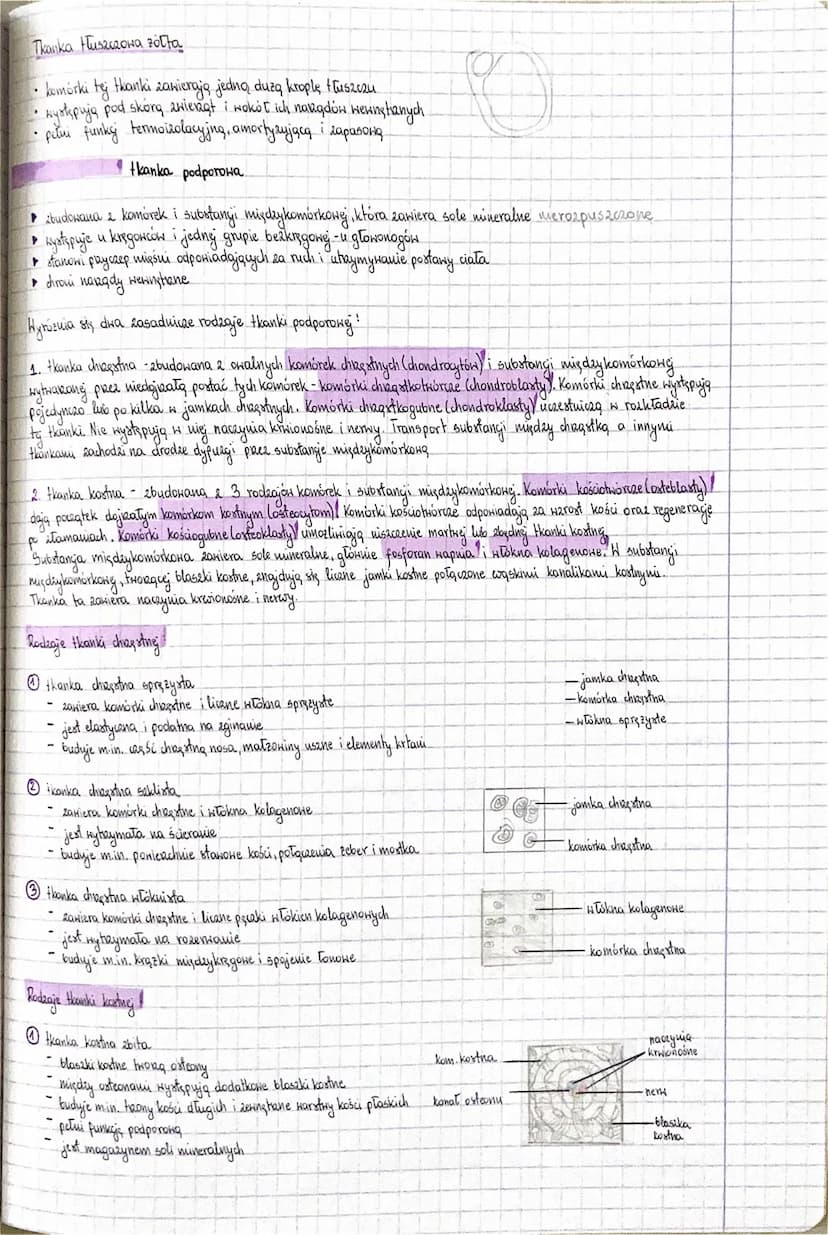 Tkanka tłuszczowa żółta
• komórki tej tkanki zawierają jedną dużą kroplę tłuszczu
• występują pod skórą zwierząt i wokół ich narządów wewnętrznych
• pełni funkcję termoizolacyjną, amortyzującą i zapasową
tkanka podporowa
▸ zbudowana z komórek i substancji międzykomórkowej, która zawiera sole mineralne nierozpuszczone
▸ występuje u kręgowców i jednej grupie bezkręgowej - u głowonogów
▸ stanowi przyczep mięśni odpowiadających za ruch i utrzymywanie postawy ciała
▸ chroni narządy wewnętrzne
Wyróżnia się dwa zasadnicze rodzaje tkanki podporowej:
1. tkanka chrzęstna - zbudowana z owalnych komórek chrzęstnych (chondrocytów) i substancji międzykomórkowej
wytwarzanej przez niedojrzałą postać tych komórek - komórki chrząstkotwórcze (chondroblasty). Komórki chrzęstne występują
pojedynczo lub po kilka w jamkach chrzęstnych. Komórki chrząstkogubne (chondroklasty) uczestniczą w rozkładzie
tej tkanki. Nie występują w niej naczynia krwionośne i nerwy. Transport substancji między chrząstką a innymi
tkankami zachodzi na drodze dyfuzji przez substancje międzykomórkową
2. tkanka kostna - zbudowana z 3 rodzajów komórek i substancji międzykomórkowej. Komórki kościotwórcze (osteblasty)
dają początek dojrzałym komórkom kostnym (osteocytom). Komórki kościotwórcze odpowiadają za wzrost kości oraz regenerację
po złamaniach. Komórki kościogubne (osteoklasty) umożliwiają niszczenie martwej lub zbędnej tkanki kostnej
Substancja międzykomórkowa zawiera sole mineralne, głównie fosforan wapnia i włókna kolagenowe. W substancji
międzykomórkowej, tworzącej blaszki kostne, znajdują się liczne jamki kostne połączone wąskimi kanalikami kostnymi.
Tkanka ta zawiera naczynia krwionośne i nerwy.
Rodzaje tkanki chrzęstnej
① tkanka chrzęstna sprężysta
- zawiera komórki chrzęstne i liczne włókna sprężyste
- jest elastyczna i podatna na zginanie
- buduje m.in. część chrzęstną nosa, małżowiny uszne i elementy krtani
jamka chrzęstna
komórka chrzęstna
włókna sprężyste
② tkanka chrzęstna szklista
- zawiera komórki chrzęstne i włókna kolagenowe
- jest wytrzymała na ścieranie
- buduje m.in. powierzchnie stawowe kości, połączenia żeber i mostka
jamka chrzęstna
komórka chrzęstna
③ tkanka chrzęstna włóknista
- zawiera komórki chrzęstne i liczne pęczki włókien kolagenowych
- jest wytrzymała na rozerwanie
- buduje m.in. krążki międzykręgowe i spojenie łonowe
włókna kolagenowe
komórka chrzęstna
Rodzaje tkanki kostnej
① tkanka kostna zbita
- blaszki kostne tworzą osteony
- między osteonami występują dodatkowe blaszki kostne
- buduje m.in. trzony kości długich i zewnętrzne warstwy kości płaskich
- pełni funkcję podporową
- jest magazynem soli mineralnych
kom. kostna
kanał osteonu
naczynia
krwionośne
nerw
blaszka
kostna